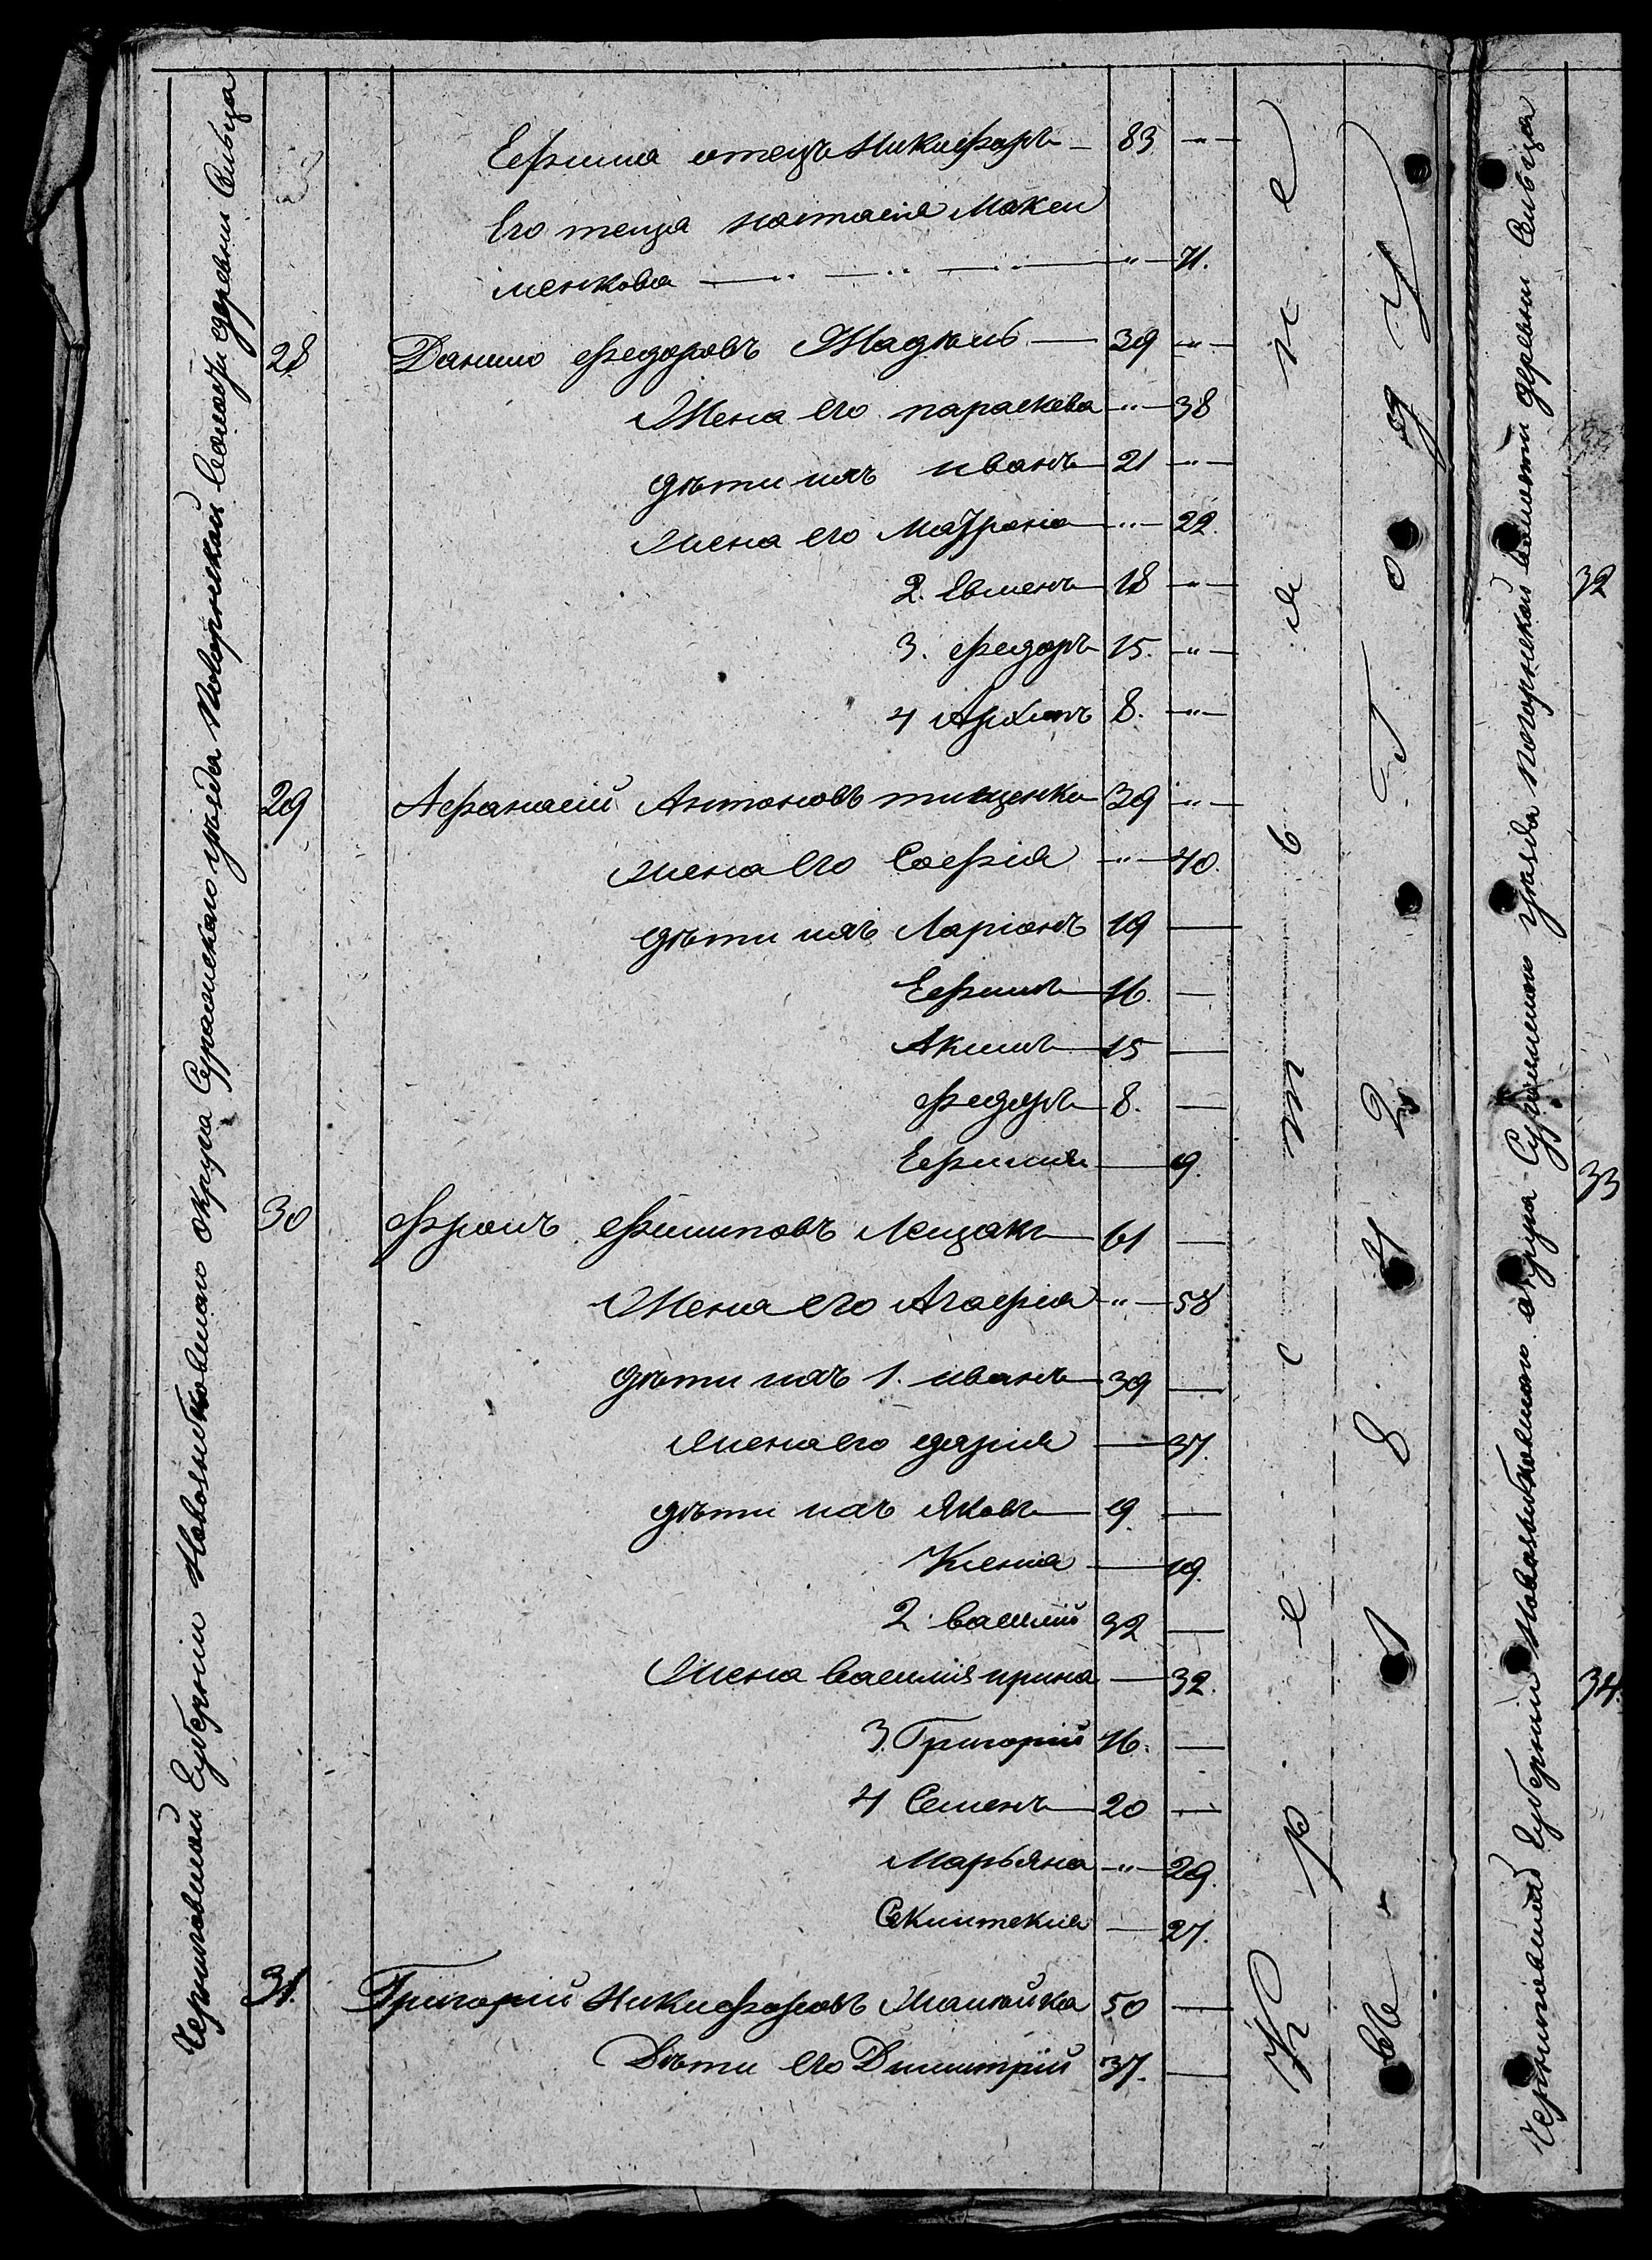 Черниговской Губерніи Новозыбковскаго округа Суражскаго уѣзда Поворнской Волости деревни Сильца
Ефима отецъ Никифоръ — 83 — " —
Его теща настасія Макси
менкова — " — 71.
28 Данило федоровъ Жадѣль — 39 — " —
Жена его параскева — " — 38
дѣти ихъ иванъ — 21 — " —
жена его Матрона — " — 22.
2. Евменъ — 18 — " —
3. федоръ 15. — " —
4 Архипъ 8. — " —
29 Афанасій Антоновъ тищенко 39 — " —
жена его Софія — " — 40.
дѣти ихъ Ларіонъ 19 —
Ефимъ — 16. —
Акимъ — 15 —
федоръ — 8. —
Ефимія — 9.
30 Фролъ Филиповъ Лещокъ — 61 —
Жена его Агафія — " — 58
дѣти ихъ 1. иванъ — 39 —
жена его дарія — 37.
дѣти ихъ Яковъ — 9. —
Ксенія — 19.
2 василій 32 —
Жена василія ирина — 32.
3. Григорій 16. —
4 Семенъ — 20 —
Марьяна — " — 29.
— 27.
31. Григорій Никифоровъ 50 —
Дѣти его Димитрій 37. —
Крестьяне
въ 1842 Году
Черниговской Губерніи Новозыбковскаго округа Суражскаго уѣзда Поворнской Волости деревни Сильца
32
33
34.